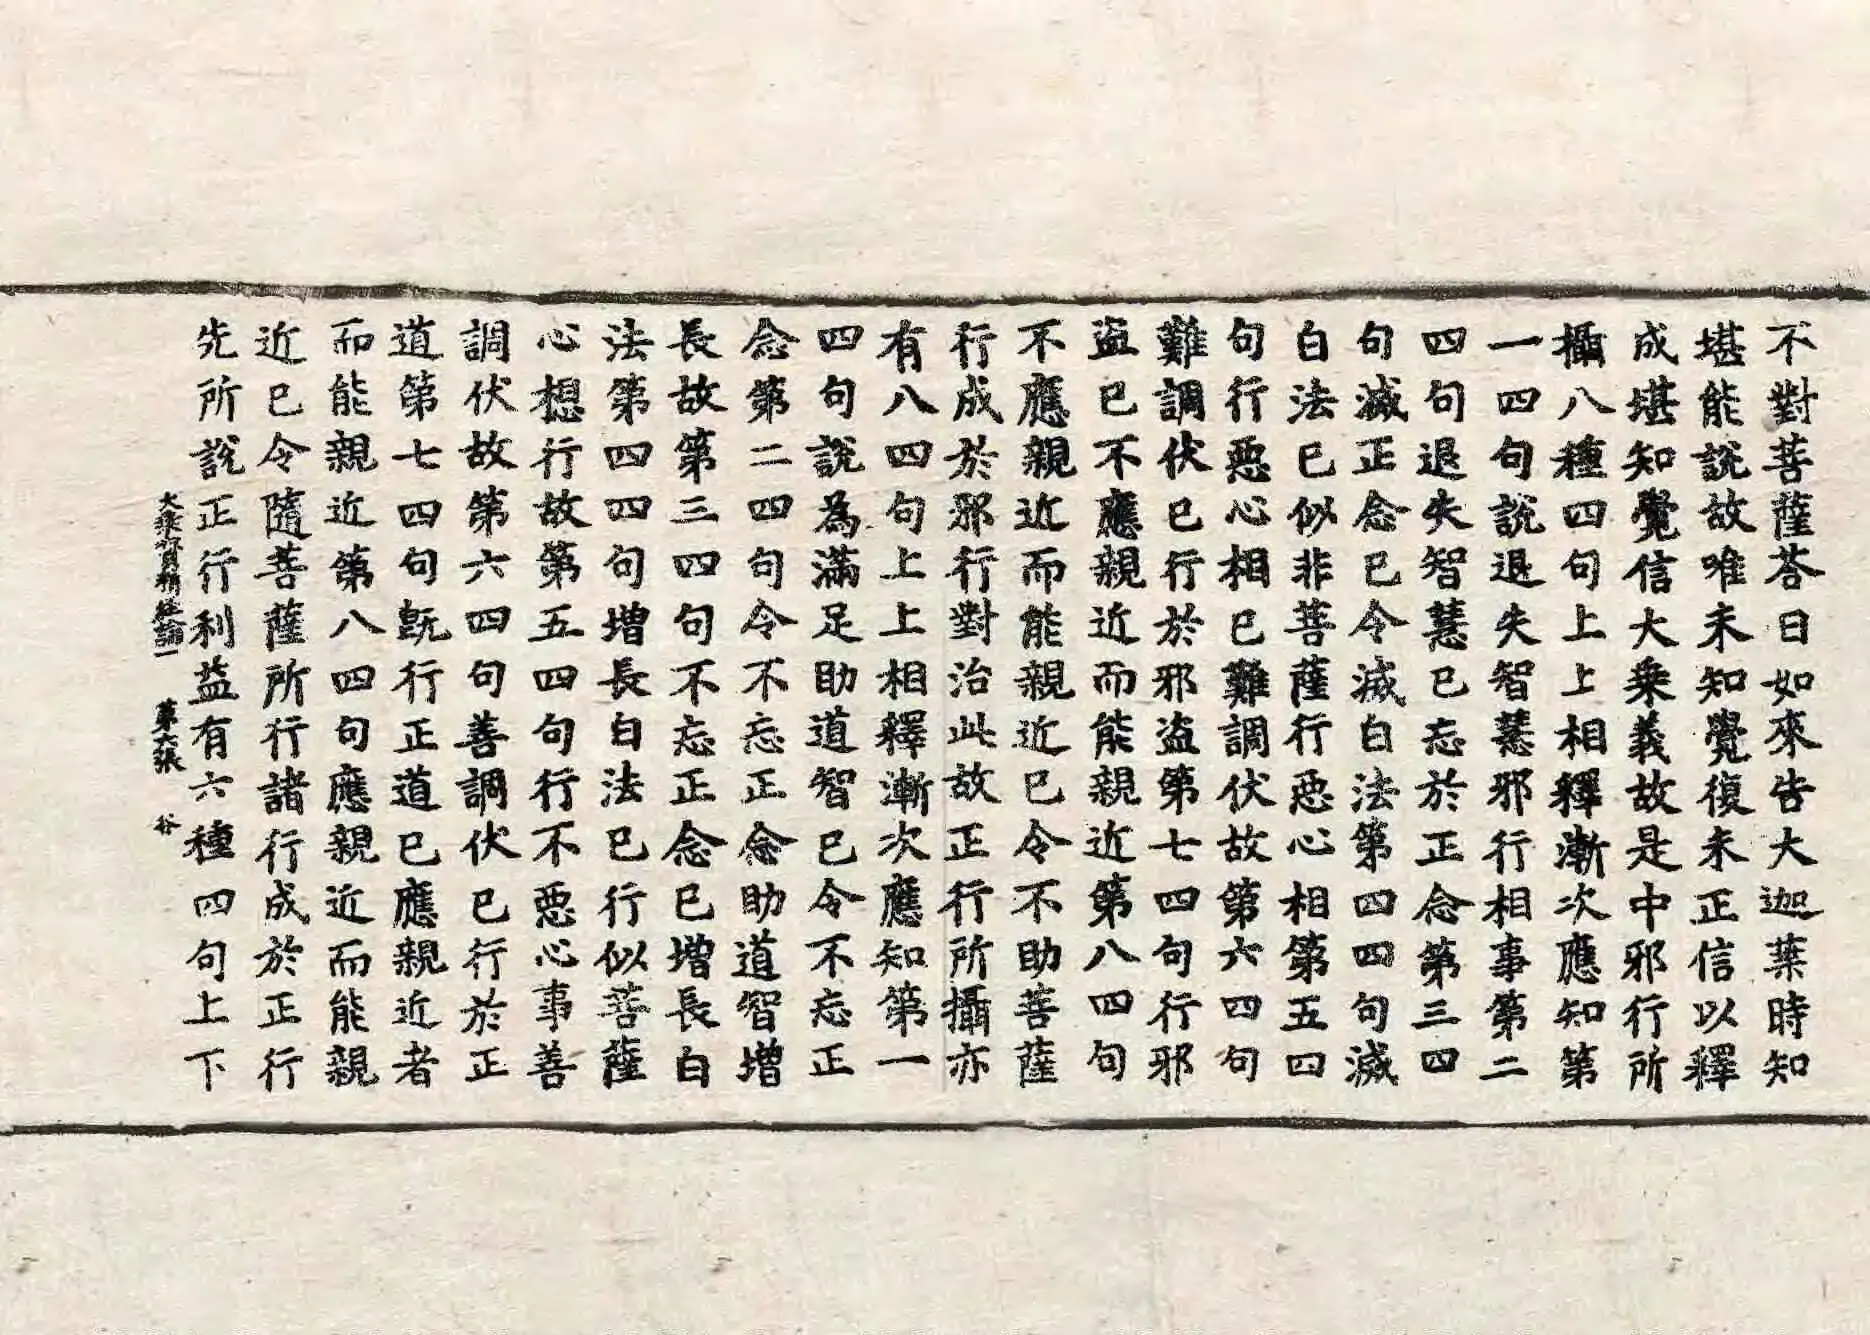 不對菩薩荅曰如來告大迦葉時知
堪能説故唯未知覺復未正信以釋
成堪知覺信大乗義故是中邪行所
攝八種四句上上相釋漸次應知第
一四句説退失智慧邪行相事第二
四句退失智慧已忘於正念第三四
句滅正念已令滅白法第四四句滅
白法已似非菩薩行惡心相第五四
句行惡心相已難調伏故第六四句
難調伏已行於邪盗第七四句行邪
盗已不應親近而能親近第八四句
不應親近而能親近已令不助菩薩
行成於邪行對治此故正行所攝亦
有八四句上上相釋漸次應知第一
四句説為滿足助道智已令不忘正
念第二四句令不忘正念助道智增
長故第三四句不忘正念已增長白
法第四四句增長白法已行似菩薩
心想行故第五四句行不惡心事善
調伏故第六四句善調伏已行於正
道第七四句既行正道已應親近者
而能親近第八四句應親近而能親
近已令隨菩薩所行諸行成於正行
先所説正行利益有六種四句上下
大乘寶積經論一 第六張 谷